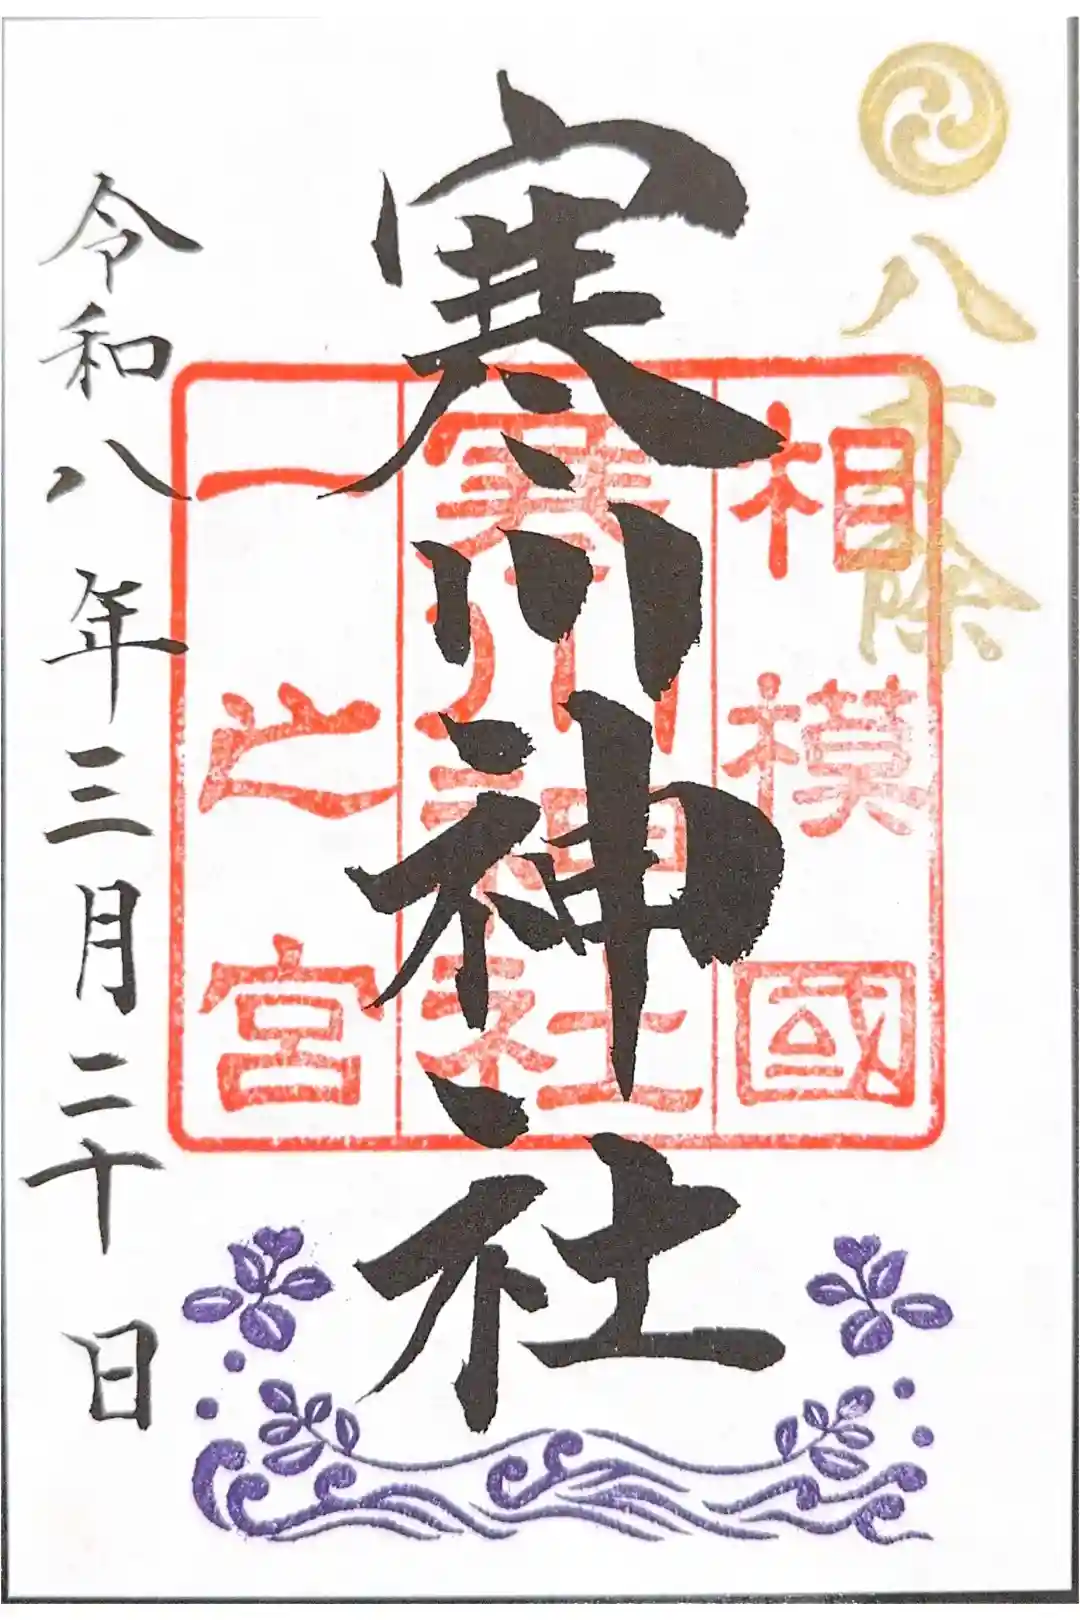 八方除
寒川神社
相模國
寒川神社
一之宮
令和八年三月二十日